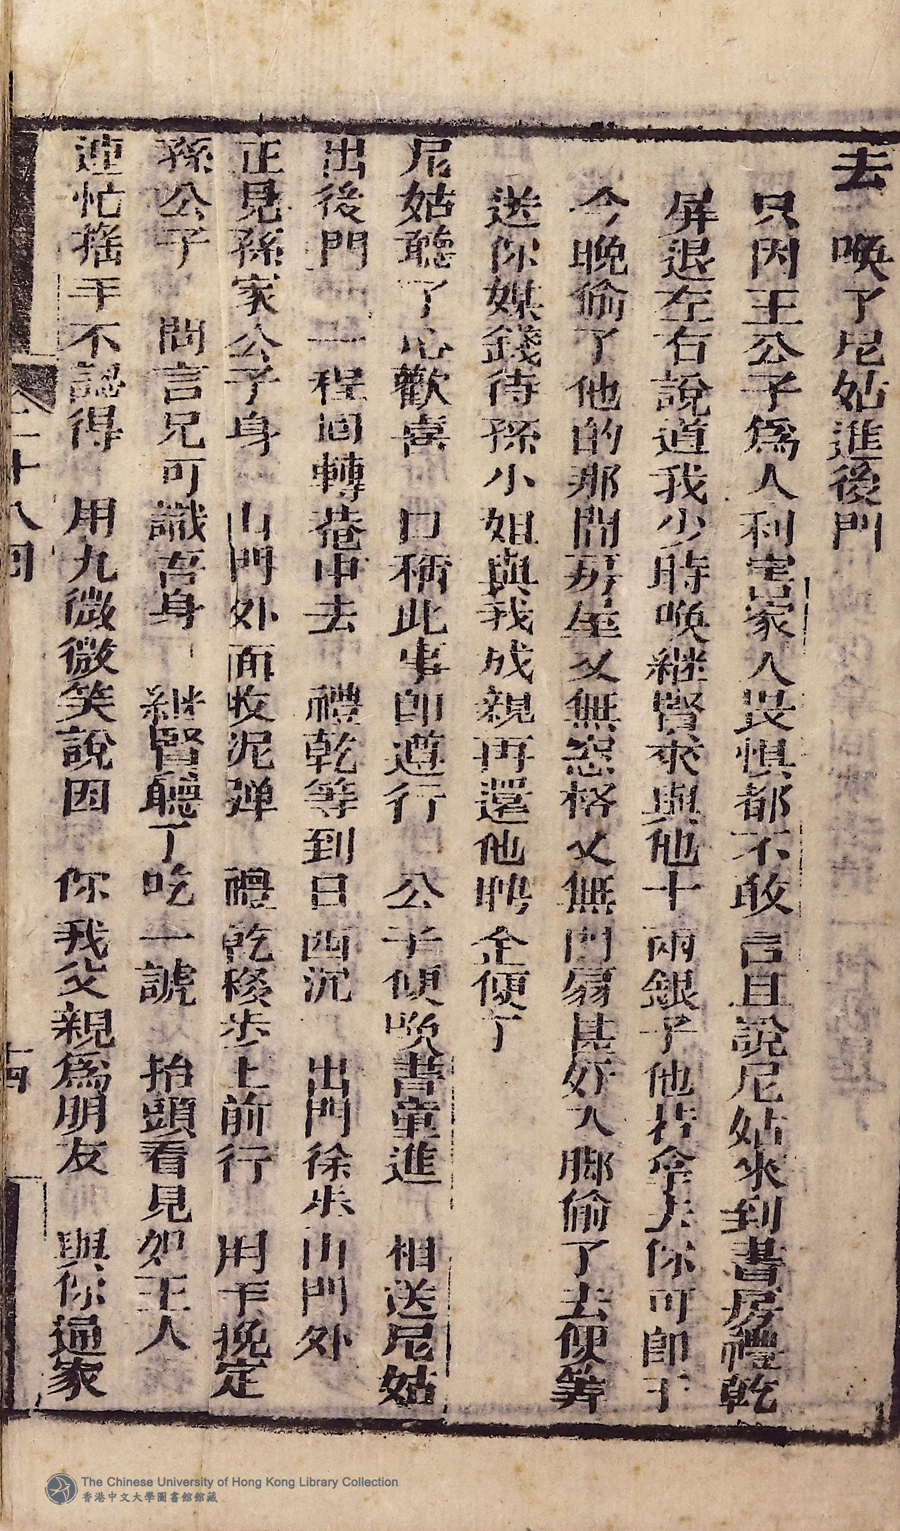 去　喚了尼姑進後門
只因王公子為人利害家人畏惧都不敢言且說尼姑來到書房禮乾
屏退左右說道我少時喚継賢來與他十兩銀子他若拿去你可即于
今晚偷了他的那間房屋又無窓格又無門扇甚好入脚偷了去便筭
送你媒錢待孫小姐與我成親再還他聘金便了
尼姑聽了心歡喜　口称此事即遵行　公子便喚書童進　相送尼姑
出後門　一程囬轉菴中去　禮乾等到日西沉　出門徐步山門外
正見孫家公子身　山門外面收泥弹　禮乾移步上前行　用手挽定
孫公子　問言兄可識吾身　継賢聽了吃一諕　抬頭看見如王人
連忙揺手不認得　用九微微笑說因　你我父親為朋友　與你通家
二十八囬
十四
The Chinese University of Hong Kong Library Collection
香港中文大學圖書館館藏